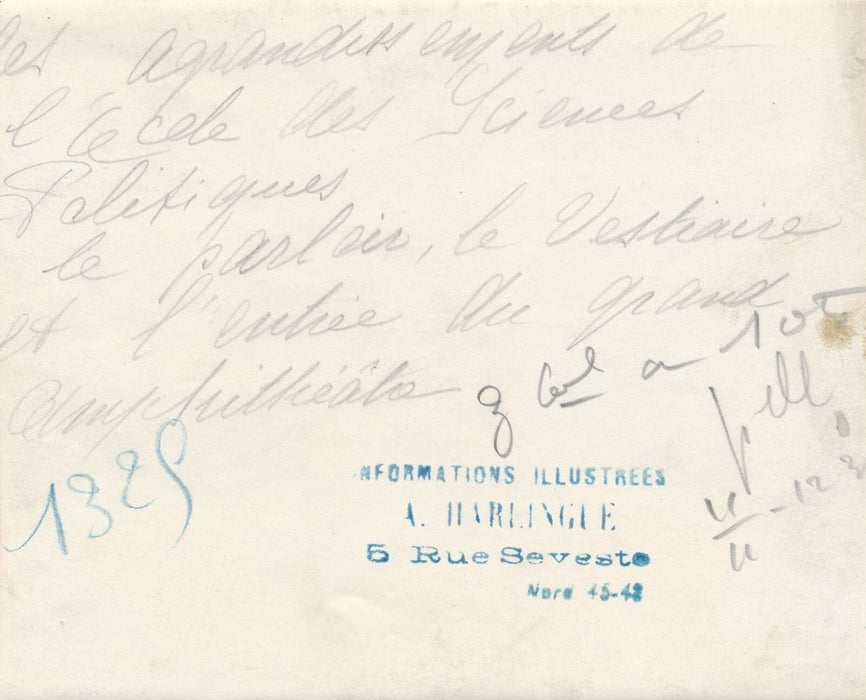 Les agrandissements de
l'Ecole des Sciences
Politiques
le parloir, le Vestiaire
et l'entrée du grand
amphithéâtre
3 col a 10
1325
NFORMATIONS ILLUSTREES
A. HARLINGUE
5 Rue Seveste
Nord 45-42